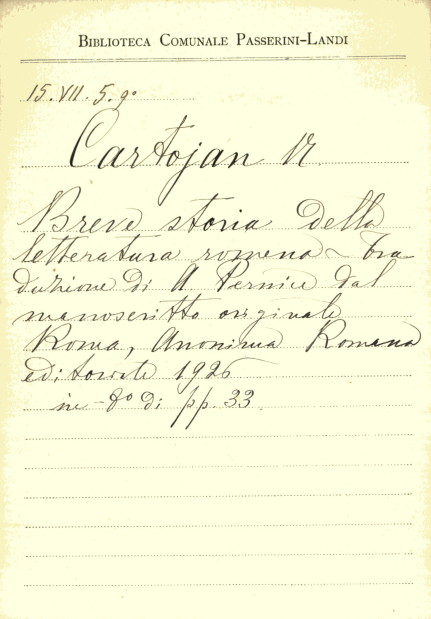 BIBLIOTECA COMUNALE PASSERINI-LANDI
15. VII. 5. 9º
Cartojan N.
Breve storia della
letteratura romena ~ Tra
duzione di A Pernice dal
manoscritto originale
Roma, Anonima Romana
editoriale 1926
in-8º di pp. 33.